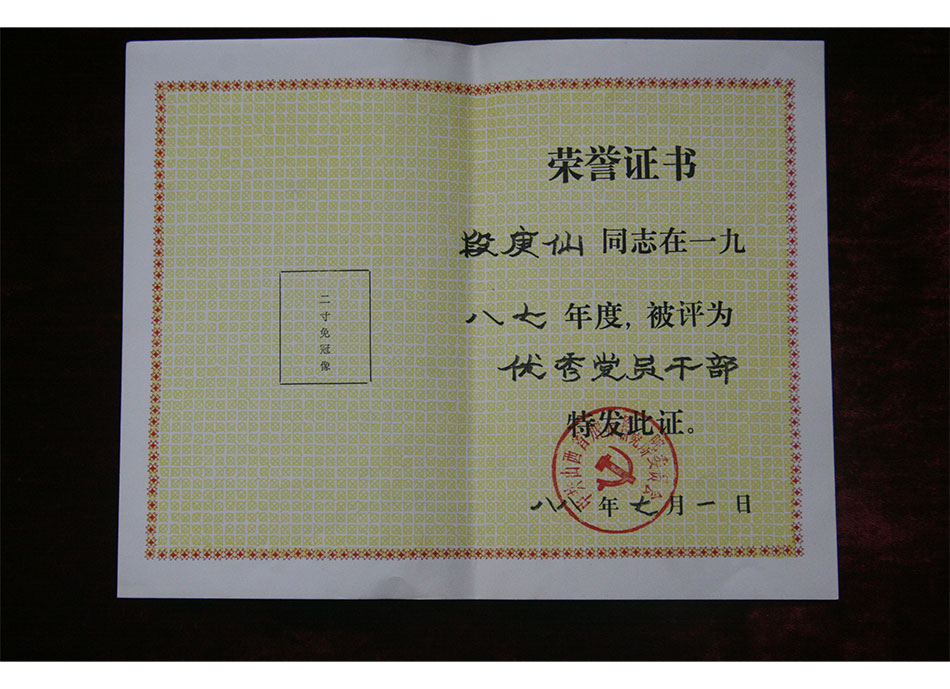 二寸免冠像
荣誉证书
段庚仙 同志在一九
八七 年度, 被评为
优秀党员干部
特发此证。
八八 年 七 月 一 日